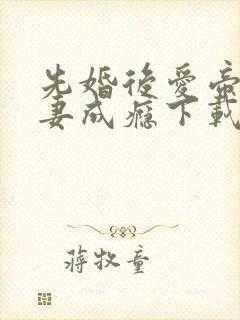 先婚後愛帝
妻成癮下載
蔣牧童